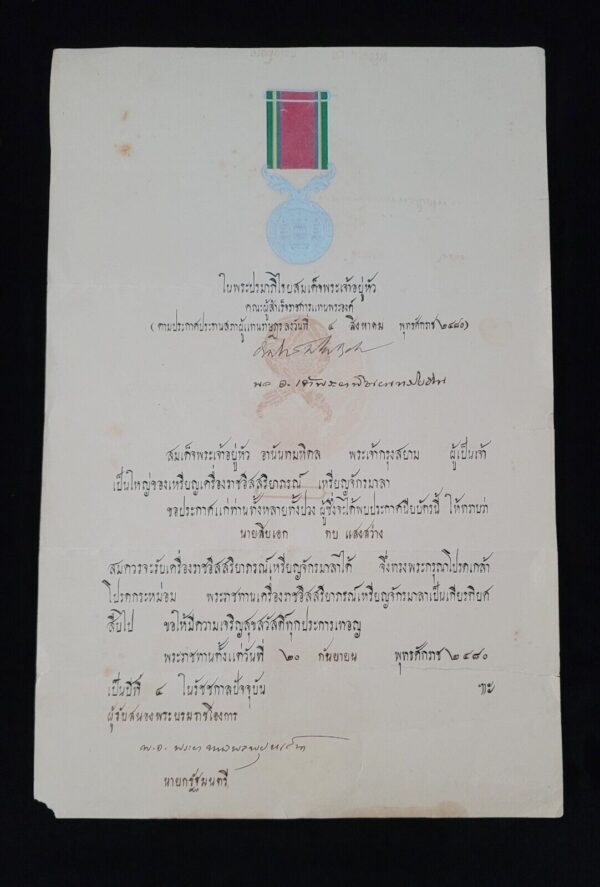 ในพระปรมาภิไธยสมเด็จพระเจ้าอยู่หัว
คณะผู้สำเร็จราชการแทนพระองค์
(ตามประกาศประธานสภาผู้แทนราษฎร ลงวันที่ ๔ สิงหาคม พุทธศักราช ๒๔๘๐)
พล อ. เจ้าพระยาพิชเยนทรโยธิน
สมเด็จพระเจ้าอยู่หัว อานันทมหิดล พระเจ้ากรุงสยาม ผู้เป็นเจ้า
เป็นใหญ่ของเหรียญเครื่องราชอิสสริยาภรณ์ เหรียญจักรมาลา
ขอประกาศแก่ท่านทั้งหลายทั้งปวง ผู้ซึ่งจะได้พบประกาศนียบัตรนี้ ให้ทราบว่า
นายสิบเอก คบ แสงสว่าง
สมควรจะรับเครื่องราชอิสสริยาภรณ์เหรียญจักรมาลาได้ จึ่งทรงพระกรุณาโปรดเกล้า
โปรดกระหม่อม พระราชทานเครื่องราชอิสสริยาภรณ์เหรียญจักรมาลาเป็นเกียรติยศ
สืบไป ขอให้มีความเจริญสุขสวัสดิ์ทุกประการเทอญ
พระราชทานตั้งแต่วันที่ ๒๐ กันยายน พุทธศักราช ๒๔๘๐
เป็นปีที่ ๔ ในรัชชกาลปัจจุบัน
ผู้รับสนองพระบรมราชโองการ
พ.อ. พระยาพหลพลพยุหเสนา
นายกรัฐมนตรี